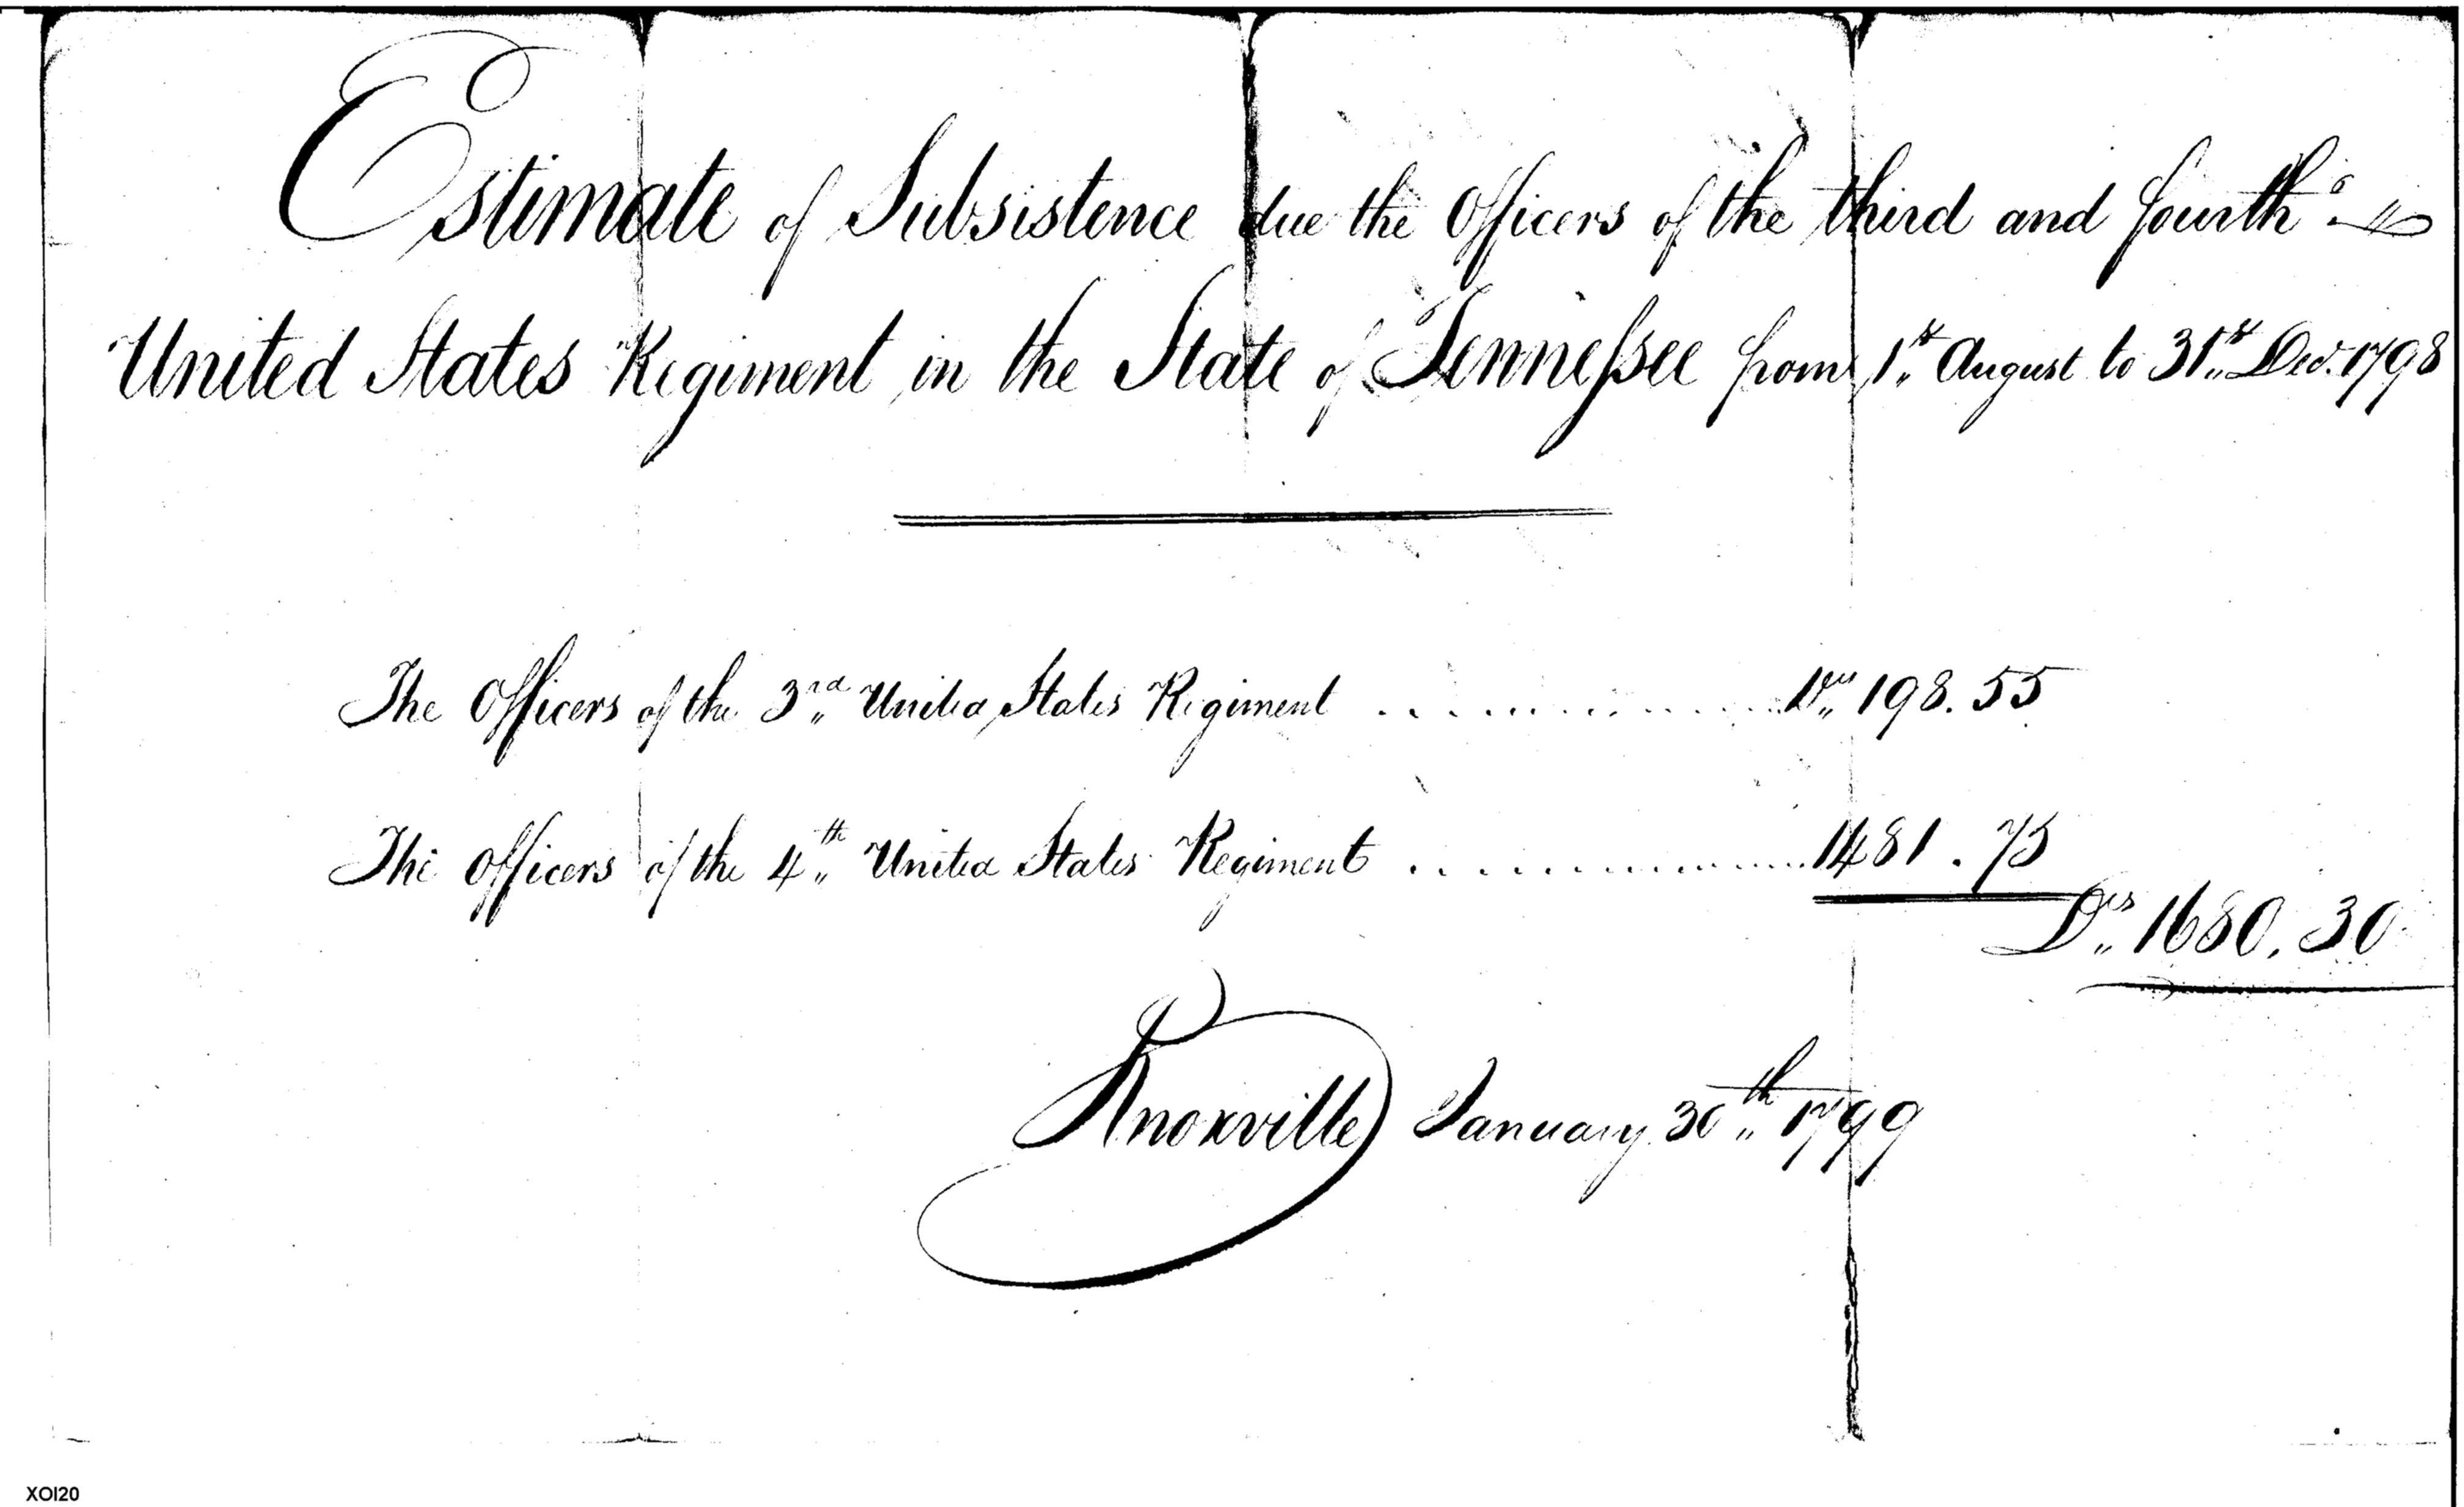 Estimate of Subsistence due the Officers of the third and fourth
United States Regiment in the State of Tennessee from 1st August to 31st Decr. 1798
The Officers of the 3rd United States Regiment ............ Drs 198.55
The Officers of the 4th United States Regiment ............ 1481.75
Drs 1680.30
Knoxville January 30th 1799
XOI20